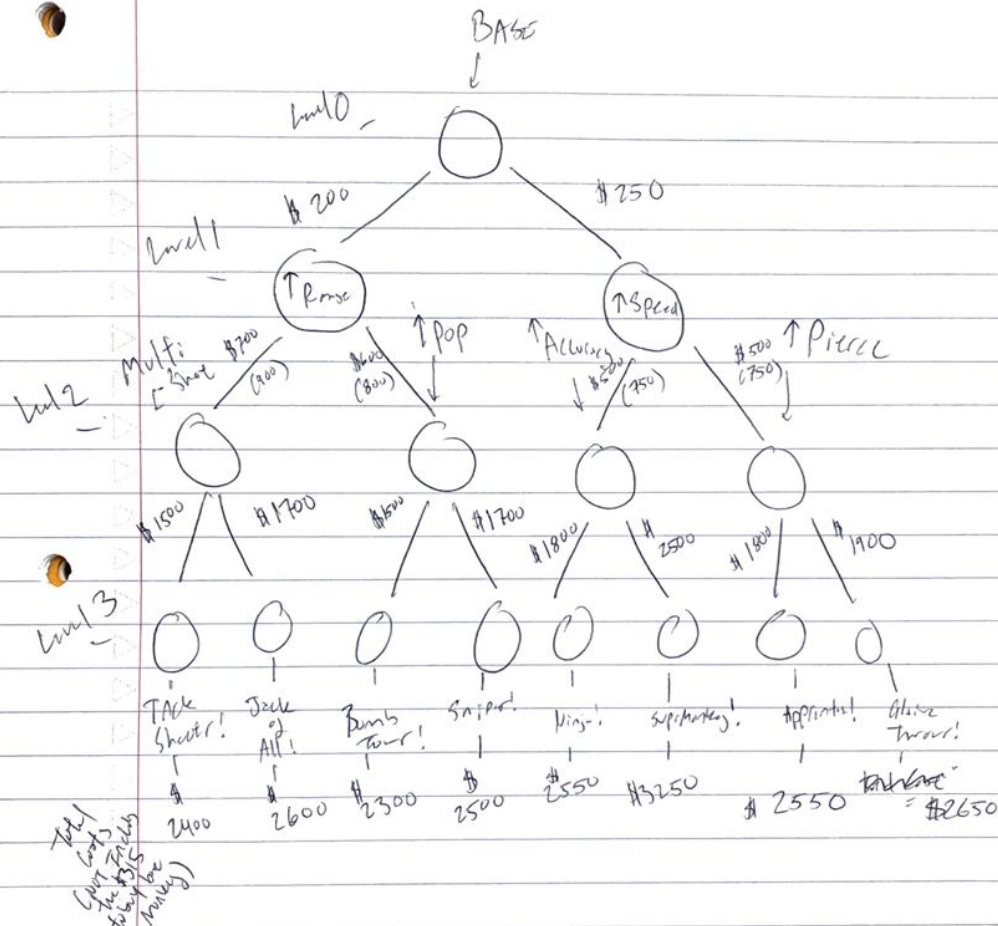 BASE
Level 0
$ 200
$ 250
Level 1
↑ Range
↑ Speed
Multi
Shot
$700
(900)
$600
(800)
↑ Pop
↑ Accuracy
$500
(750)
$500
(750)
↑ Pierce
Lvl 2
$1500
$1700
$1500
$1700
$1800
$2500
$1800
$1900
Level 3
Tack
Shooter!
Jack
of
All!
Bomb
Tower!
Sniper!
Ninja!
Supermonkey!
Apprentis!
Glaive
Thrower!
$
2400
$
2600
$2300
$
2500
$
2550
$3250
$ 2550
= $2650
Total
Costs
(NOT Including
the $315
to buy the
monkey)